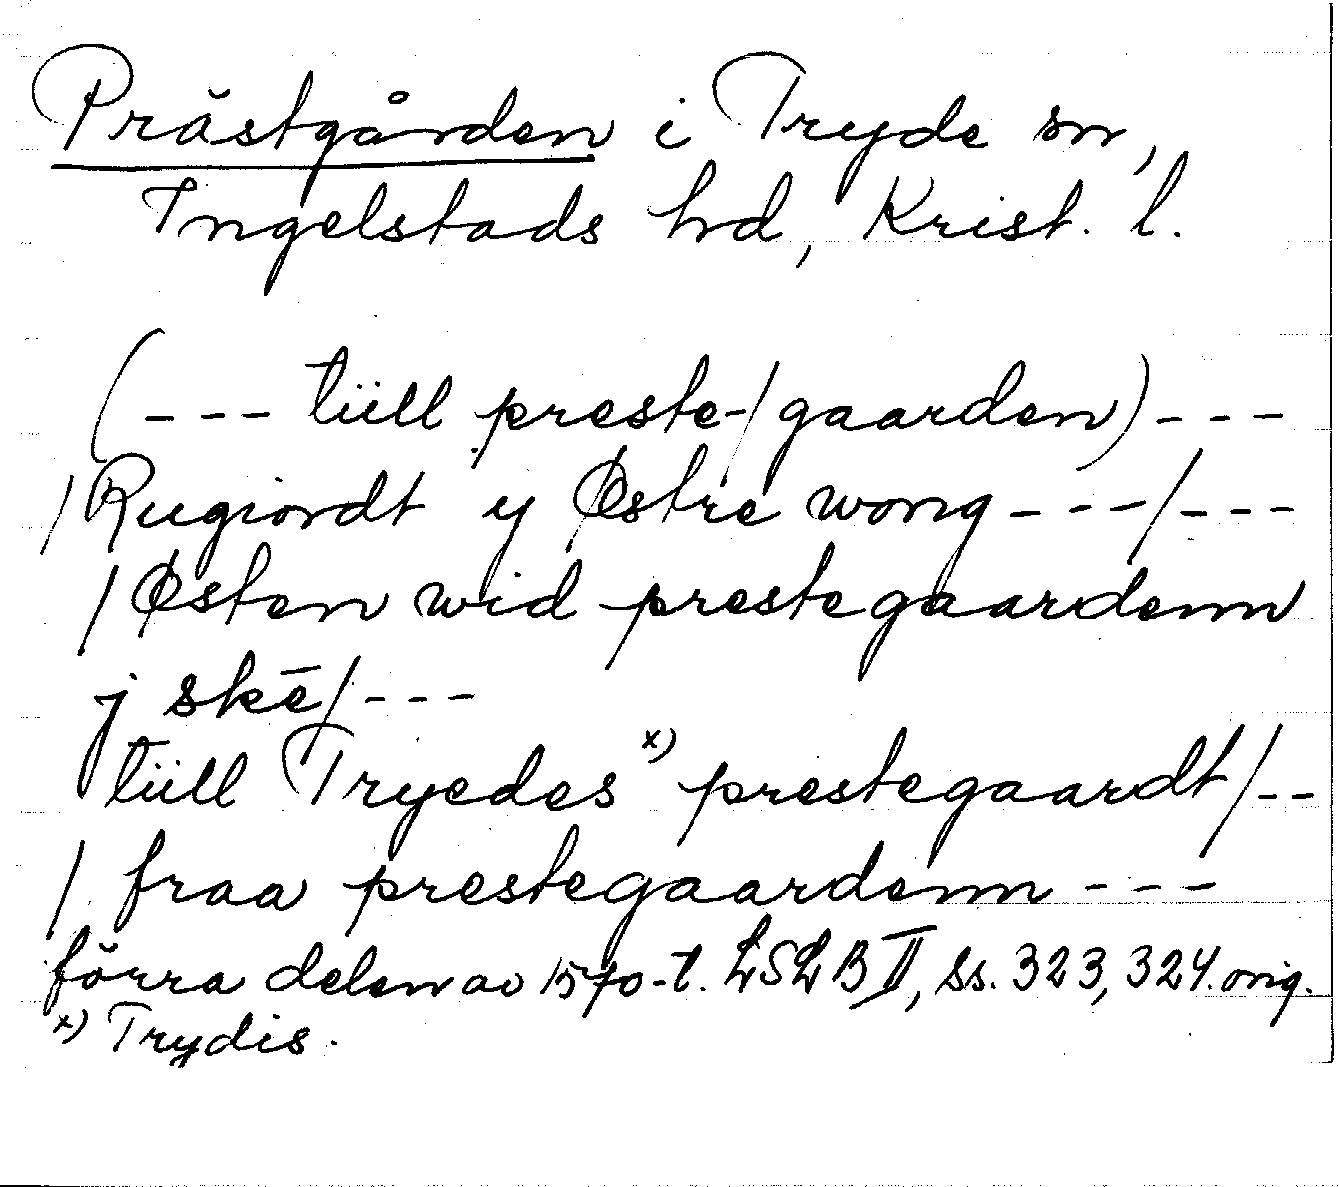 Prästgården i Tryde sn,
Ingelstads hd, Krist. l.
(--- tüll preste-/gaarden)---
/Rugiordt y Østre wong---/---
/Østen wid prestegaardenn
j skē/---
tüll Tryedes x) prestegaardt/--
/ fraa prestegaardenn ---
förra delen av 1570-t. LSLB II, ss. 323, 324. orig.
x) Trydis.